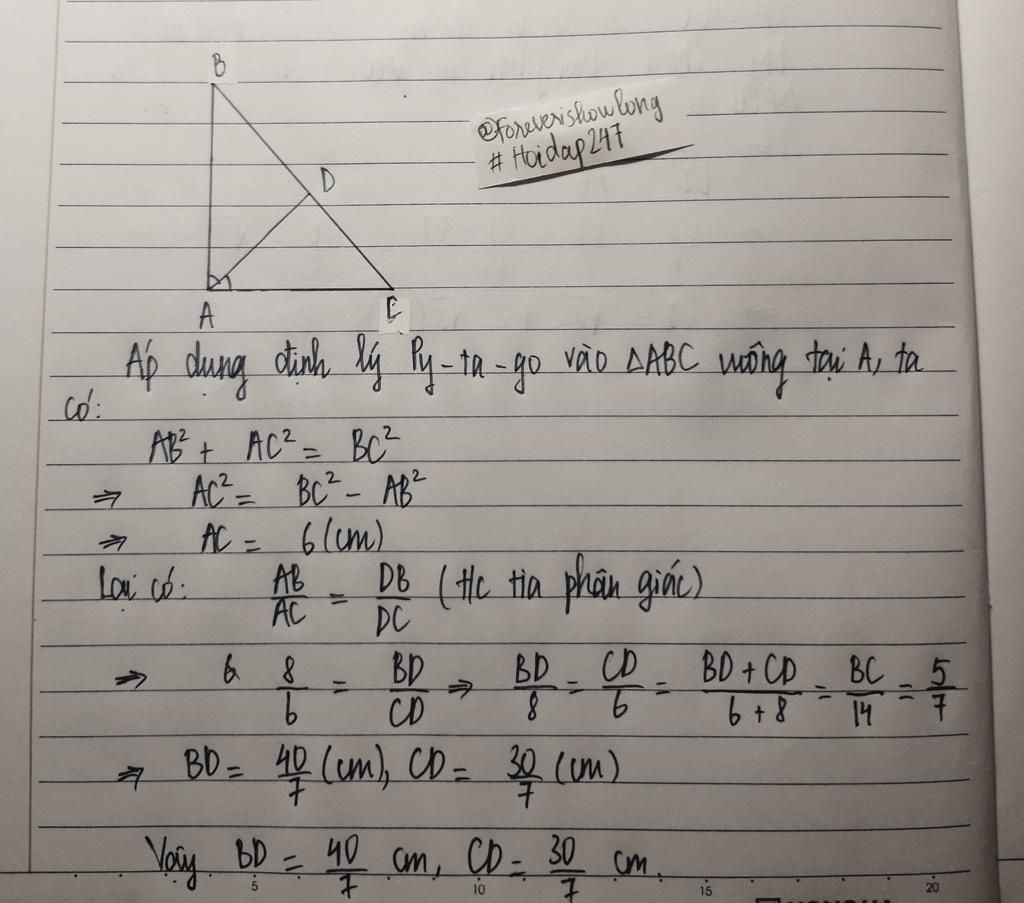 B
@Foreverishowlong
#Hoidap247
D
A
C
Áp dụng định lý Py-ta-go vào △ABC vuông tại A, ta
có:
AB² + AC² = BC²
⇒ AC² = BC² - AB²
⇒ AC = 6 (cm)
Lại có: AB/AC = DB/DC (t/c tia phân giác)
⇒ 8/6 = BD/CD ⇒ BD/8 = CD/6 = (BD + CD)/(6 + 8) = BC/14 = 5/7
⇒ BD = 40/7 (cm), CD = 30/7 (cm)
Vậy BD = 40/7 cm, CD = 30/7 cm.
5 10 15 20